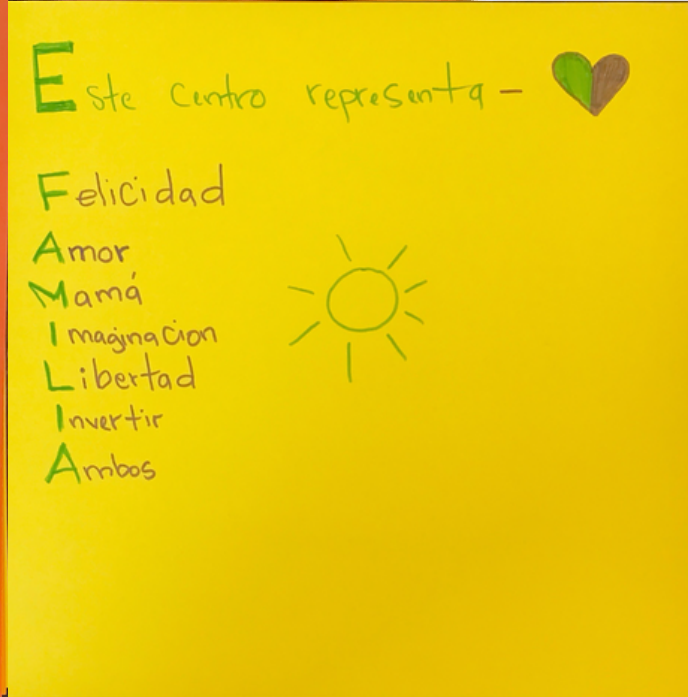 Este centro representa -
Felicidad
Amor
Mamá
Imaginacion
Libertad
Invertir
Ambos